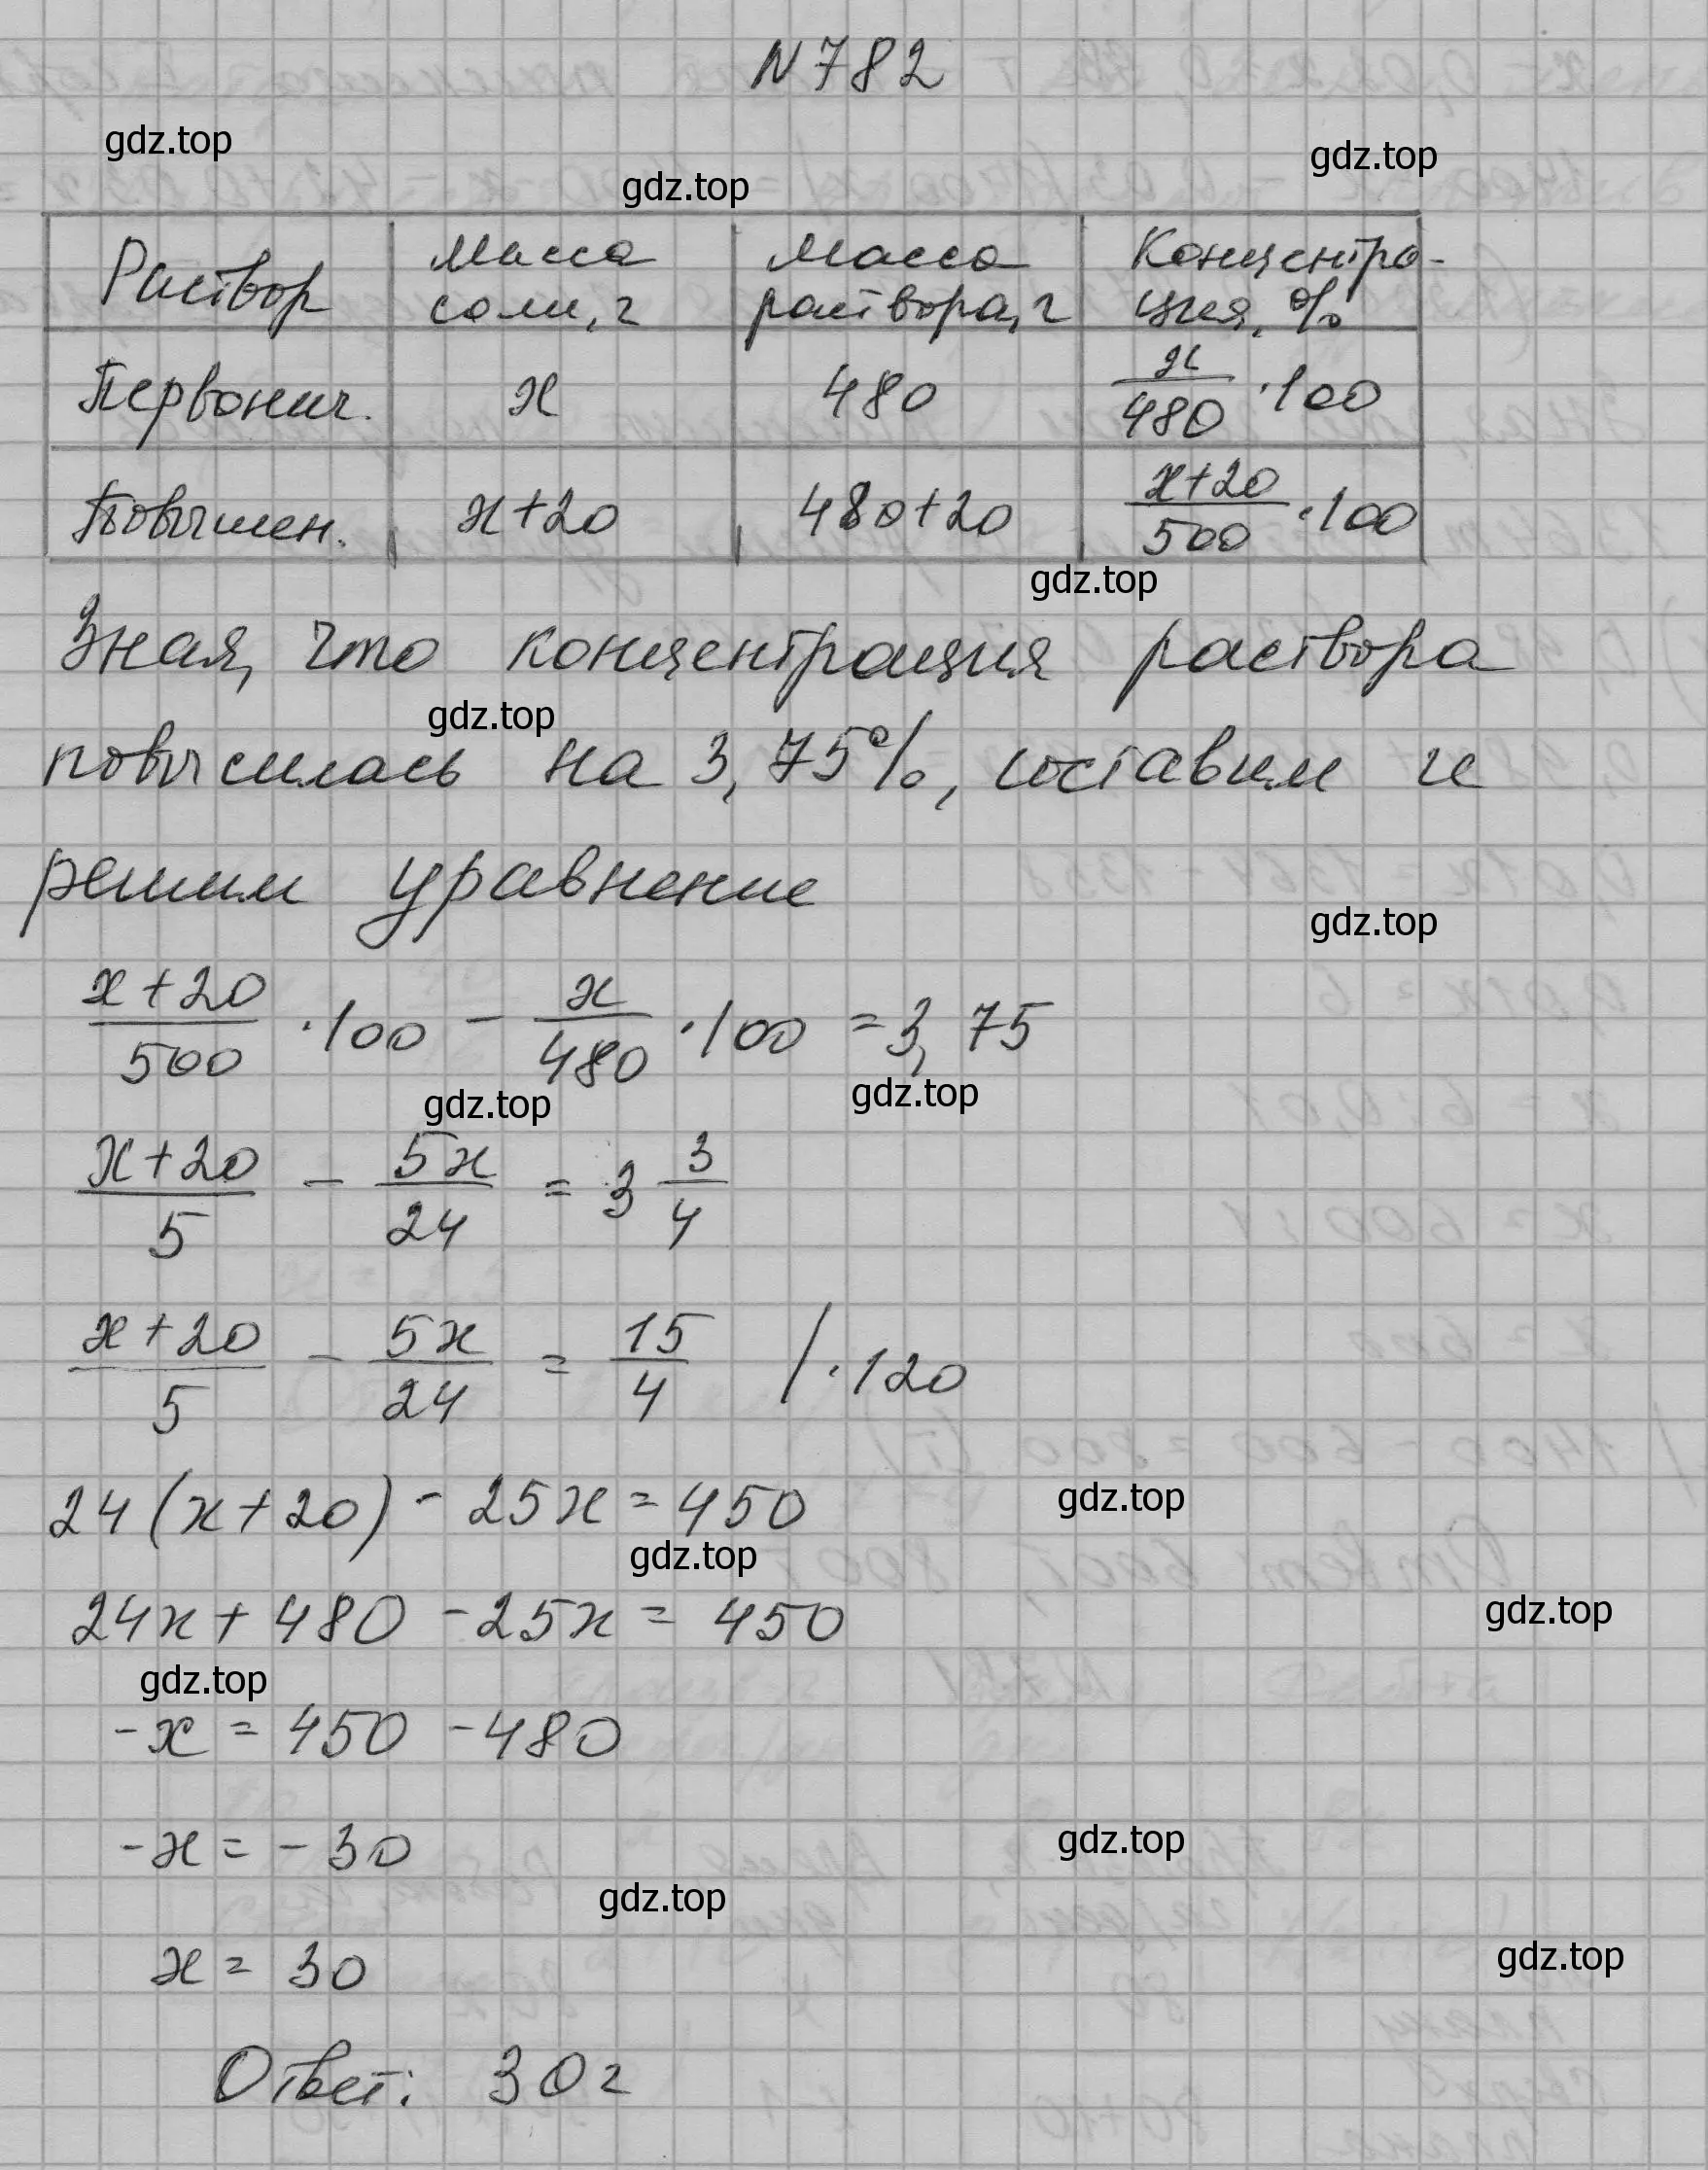 N 782
gdz.top
gdz.top
gdz.top
Раствор | Масса соли, г | Масса раствора, г | Концентрация, %
Первонач. | x | 480 | x/480 · 100
Повышен. | x + 20 | 480 + 20 | (x + 20)/500 · 100
gdz.top
Зная, что концентрация раствора
gdz.top
повысилась на 3,75%, составим и
решим уравнение
gdz.top
(x + 20)/500 · 100 - x/480 · 100 = 3,75
gdz.top
gdz.top
(x + 20)/5 - 5x/24 = 3 3/4
(x + 20)/5 - 5x/24 = 15/4 / · 120
24(x + 20) - 25x = 450
gdz.top
gdz.top
24x + 480 - 25x = 450
gdz.top
gdz.top
-x = 450 - 480
-x = -30
gdz.top
gdz.top
x = 30
gdz.top
Ответ: 30 г